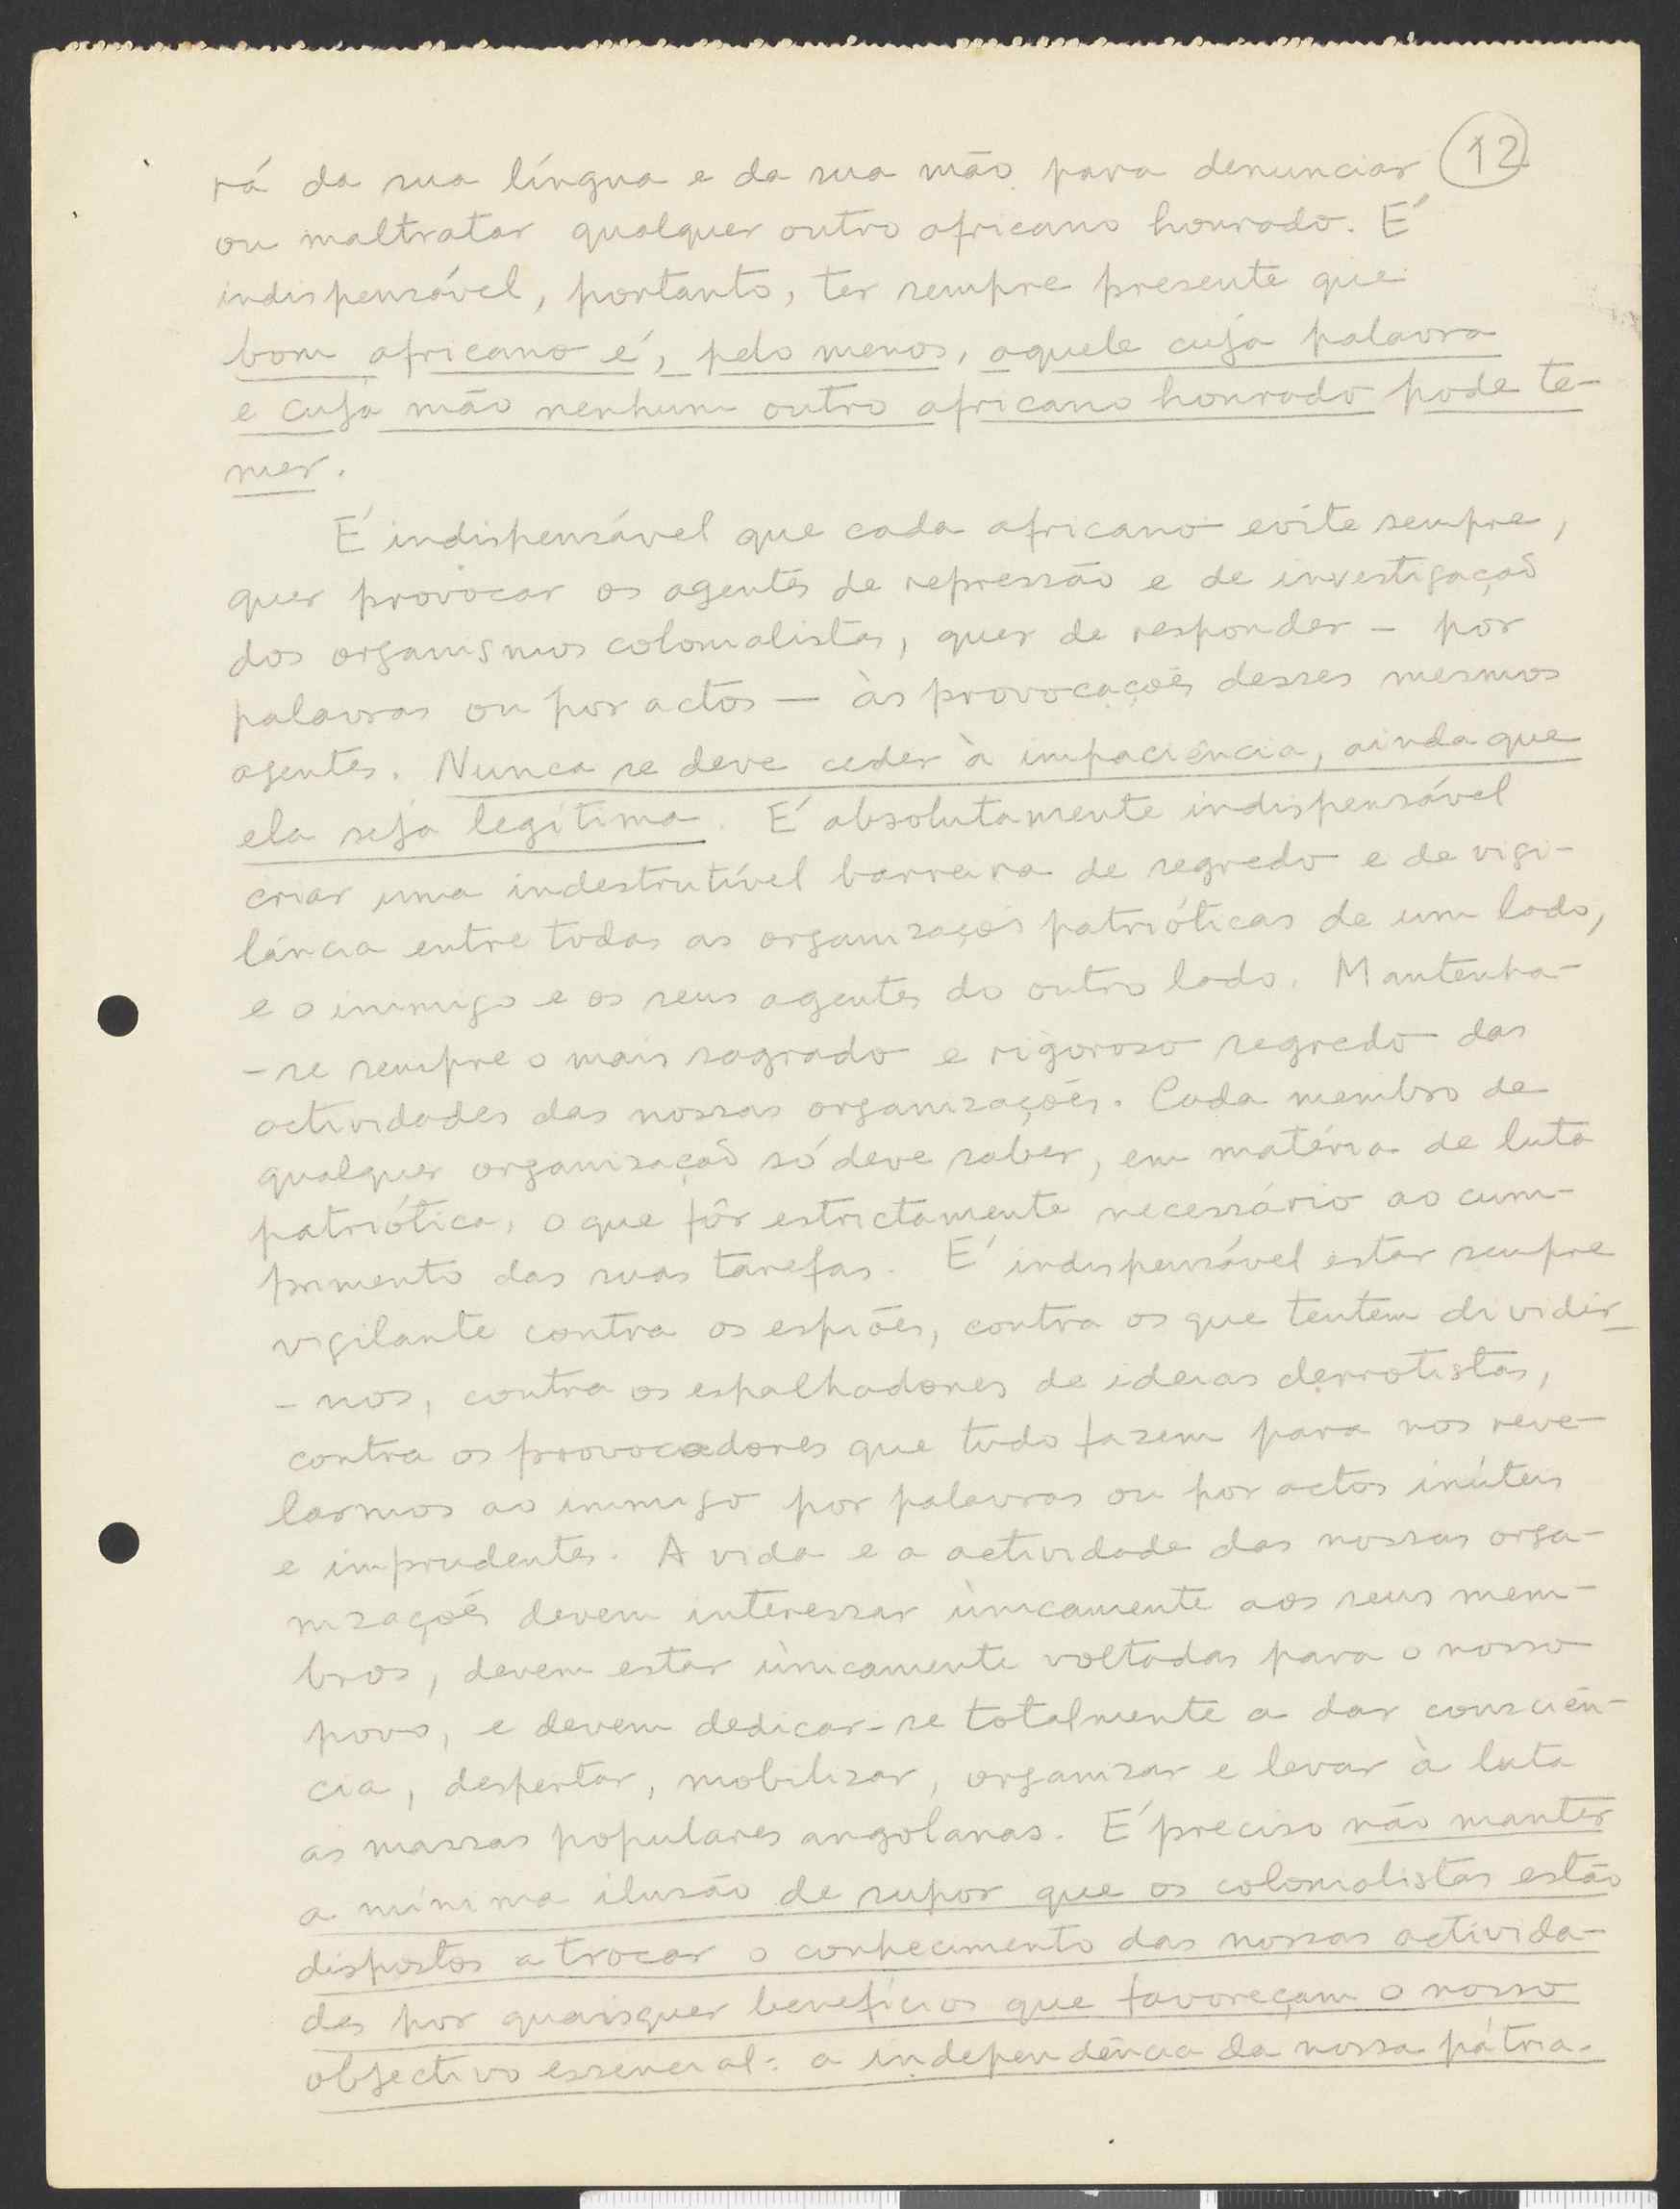 12
rá da sua língua e da sua mão para denunciar
ou maltratar qualquer outro africano honrado. É
indispensável, portanto, ter sempre presente que
bom africano é, pelo menos, aquele cuja palavra
e cuja mão nenhum outro africano honrado pode te-
mer.
É indispensável que cada africano evite sempre,
quer provocar os agentes de repressão e de investigação
dos organismos colonialistas, quer de responder - por
palavras ou por actos - às provocações desses mesmos
agentes. Nunca se deve ceder à impaciência, ainda que
ela seja legítima. É absolutamente indispensável
criar uma indestrutível barreira de segredo e de vigi-
lância entre todas as organizações patrióticas de um lado,
e o inimigo e os seus agentes do outro lado. Mantenha-
-se sempre o mais sagrado e rigoroso segredo das
actividades das nossas organizações. Cada membro de
qualquer organização só deve saber, em matéria de luta
patriótica, o que fôr estrictamente necessário ao cum-
primento das suas tarefas. É indispensável estar sempre
vigilante contra os espiões, contra os que tentem dividir-
-nos, contra os espalhadores de ideias derrotistas,
contra os provocadores que tudo fazem para nos reve-
larmos ao inimigo por palavras ou por actos inúteis
e imprudentes. A vida e a actividade das nossas orga-
nizações devem interessar ùnicamente aos seus mem-
bros, devem estar ùnicamente voltadas para o nosso
povo, e devem dedicar-se totalmente a dar consciên-
cia, despertar, mobilizar, organizar e levar à luta
as massas populares angolanas. É preciso não manter
a mínima ilusão de supor que os colonialistas estão
dispostos a trocar o conhecimento das nossas activida-
des por quaisquer benefícios que favoreçam o nosso
objectivo essencial: a independência da nossa pátria.